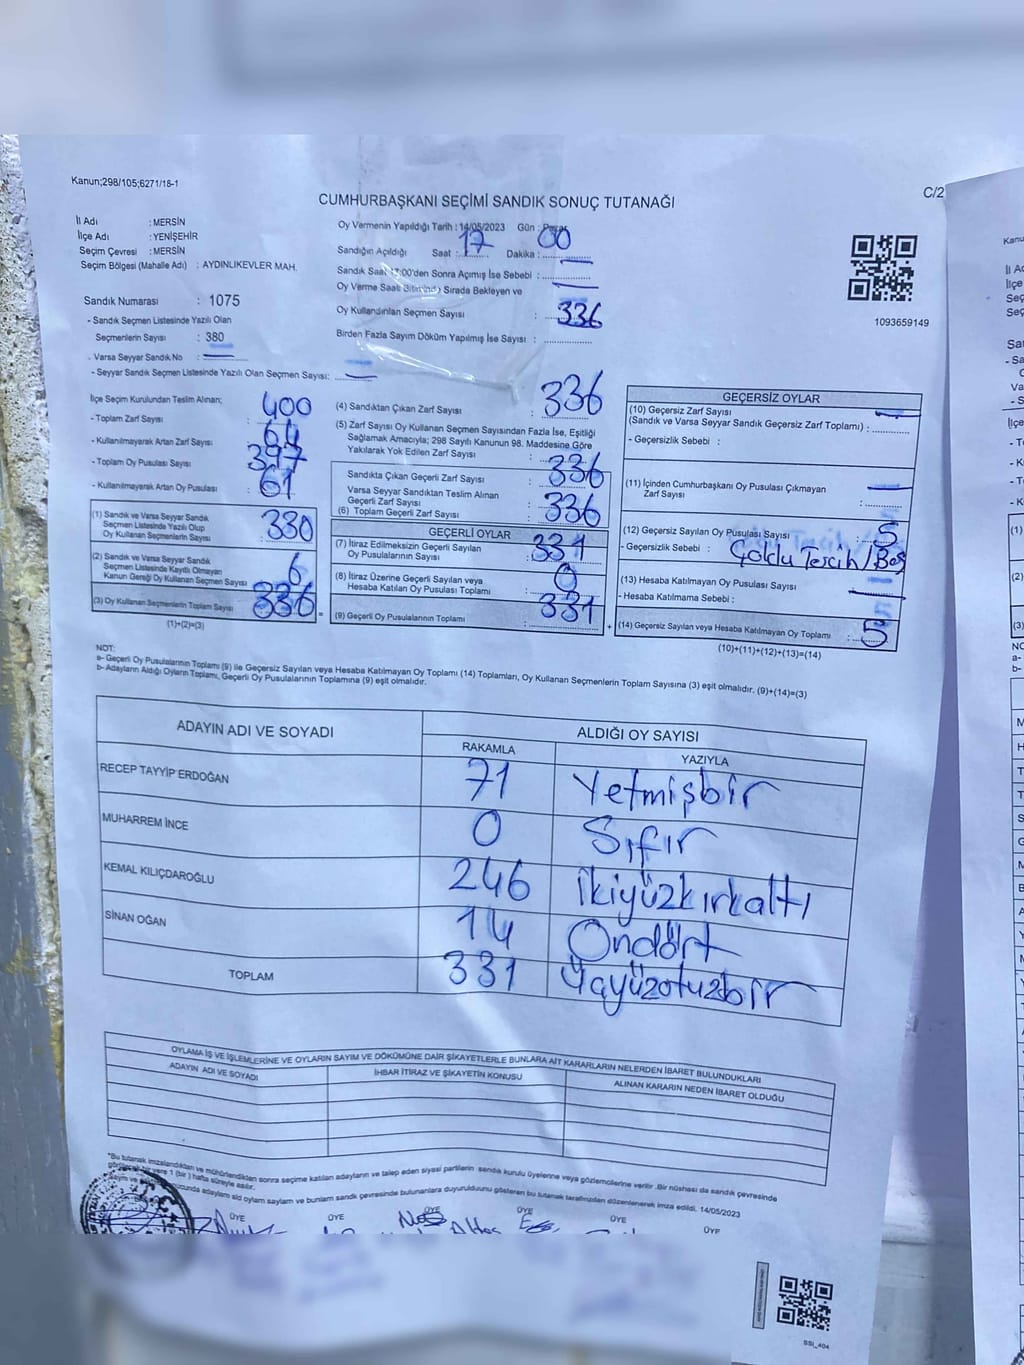 Kanun;298/105;6271/18-1
C/2
CUMHURBAŞKANI SEÇİMİ SANDIK SONUÇ TUTANAĞI
İl Adı : MERSİN
İlçe Adı : YENİŞEHİR
Seçim Çevresi : MERSİN
Seçim Bölgesi (Mahalle Adı) : AYDINLIKEVLER MAH.
Sandık Numarası : 1075
- Sandık Seçmen Listesinde Yazılı Olan
Seçmenlerin Sayısı : 380
. Varsa Seyyar Sandık No :
- Seyyar Sandık Seçmen Listesinde Yazılı Olan Seçmen Sayısı:
Oy Vermenin Yapıldığı Tarih : 14/05/2023 Gün : Pazar
Sandığın Açıldığı Saat : 17 Dakika : 00
Sandık Saat 17:00'den Sonra Açımış İse Sebebi :
Oy Verme Saati Bitiminde Sırada Bekleyen ve
Oy Kullandırılan Seçmen Sayısı : 336
Birden Fazla Sayım Döküm Yapılmış İse Sayısı :
1093659149
İlçe Seçim Kurulundan Teslim Alınan;
- Toplam Zarf Sayısı : 400
- Kullanılmayarak Artan Zarf Sayısı : 64
- Toplam Oy Pusulası Sayısı : 397
- Kullanılmayarak Artan Oy Pusulası : 61
(1) Sandık ve Varsa Seyyar Sandık
Seçmen Listesinde Yazılı Olup
Oy Kullanan Seçmenlerin Sayısı : 330
(2) Sandık ve Varsa Seyyar Sandık
Seçmen Listesinde Kayıtlı Olmayan
Kanun Gereği Oy Kullanan Seçmen Sayısı : 6
(3) Oy Kullanan Seçmenlerin Toplam Sayısı : 336
(1)+(2)=(3)
(4) Sandıktan Çıkan Zarf Sayısı : 336
(5) Zarf Sayısı Oy Kullanan Seçmen Sayısından Fazla İse, Eşitliği
Sağlamak Amacıyla; 298 Sayılı Kanunun 98. Maddesine Göre
Yakılarak Yok Edilen Zarf Sayısı :
Sandıkta Çıkan Geçerli Zarf Sayısı : 336
Varsa Seyyar Sandıktan Teslim Alınan
Geçerli Zarf Sayısı
(6) Toplam Geçerli Zarf Sayısı : 336
GEÇERLİ OYLAR
(7) İtiraz Edilmeksizin Geçerli Sayılan
Oy Pusulalarının Sayısı : 331
(8) İtiraz Üzerine Geçerli Sayılan veya
Hesaba Katılan Oy Pusulası Toplamı : 0
(9) Geçerli Oy Pusulalarının Toplamı : 331
GEÇERSİZ OYLAR
(10) Geçersiz Zarf Sayısı
(Sandık ve Varsa Seyyar Sandık Geçersiz Zarf Toplamı) :
- Geçersizlik Sebebi :
(11) İçinden Cumhurbaşkanı Oy Pusulası Çıkmayan
Zarf Sayısı :
(12) Geçersiz Sayılan Oy Pusulası Sayısı : 5
- Geçersizlik Sebebi : Çoklu Tercih/Boş
(13) Hesaba Katılmayan Oy Pusulası Sayısı
- Hesaba Katılmama Sebebi :
(14) Geçersiz Sayılan veya Hesaba Katılmayan Oy Toplamı : 5
(10)+(11)+(12)+(13)=(14)
NOT:
a- Geçerli Oy Pusulalarının Toplamı (9) ile Geçersiz Sayılan veya Hesaba Katılmayan Oy Toplamı (14) Toplamları, Oy Kullanan Seçmenlerin Toplam Sayısına (3) eşit olmalıdır. (9)+(14)=(3)
b- Adayların Aldığı Oyların Toplamı, Geçerli Oy Pusulalarının Toplamına (9) eşit olmalıdır.
ADAYIN ADI VE SOYADI
ALDIĞI OY SAYISI
RAKAMLA YAZIYLA
RECEP TAYYİP ERDOĞAN 71 Yetmişbir
MUHARREM İNCE 0 Sıfır
KEMAL KILIÇDAROĞLU 246 ikiyüzkırkaltı
SİNAN OĞAN 14 Ondört
TOPLAM 331 Üçyüzotuzbir
OYLAMA İŞ VE İŞLEMLERİNE VE OYLARIN SAYIM VE DÖKÜMÜNE DAİR ŞİKAYETLERLE BUNLARA AİT KARARLARIN NELERDEN İBARET BULUNDUKLARI
ADAYIN ADI VE SOYADI İHBAR İTİRAZ VE ŞİKAYETİN KONUSU ALINAN KARARIN NEDEN İBARET OLDUĞU
*Bu tutanak imzalandıktan ve mühürlendikten sonra seçime katılan adayların ve talep eden siyasi partilerin sandık kurulu üyelerine veya gözlemcilerine verilir. Bir nüshası da sandık çevresinde
görülecek bir yere 1 (bir) hafta süreyle asılır.
düzenlenerek imza edildi. 14/05/2023
ÜYE ÜYE ÜYE ÜYE ÜYE ÜYE
SSI_404